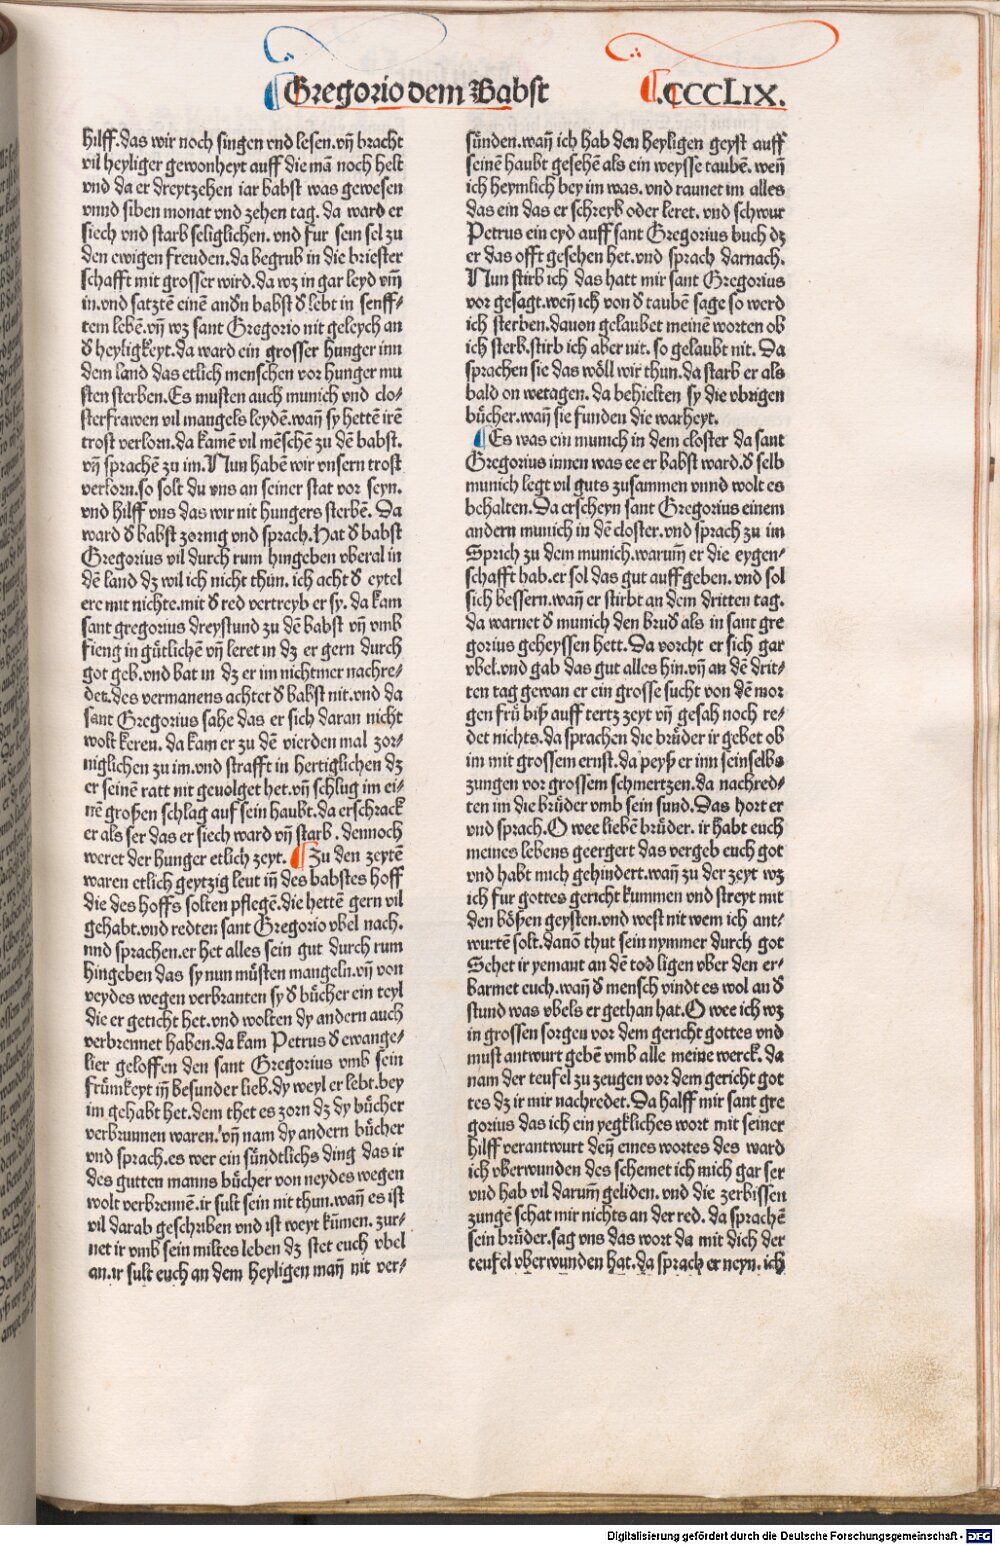 Gregorio dem Babst
.CCCLIX.
hilff. das wir noch singen vnd lesen. vñ bracht
vil heyliger gewonheyt auff die mã noch helt
vnd da er dreytzehen iar babst was gewesen
vnnd siben monat vnd zehen tag. da ward er
siech vnd starb seliglichen. vnd fur sein sel zu
den ewigen freuden. da begrub in die briester
schafft mit grosser wird. da wz in gar leyd vm̃
in. vnd satztẽ einẽ andn babst ð lebt in senff⸗
tem lebẽ. vñ wz sant Gregorio nit geleych an
ð heyligkeyt. da ward ein grosser hunger inn
dem land das etlich menschen vor hunger mu
sten sterben. Es musten auch munich vnd clo⸗
sterfrawen vil mangels leydẽ. wañ sy hettẽ irẽ
trost verlorn. da kamẽ vil mẽschẽ zu dẽ babst.
vñ sprachẽ zu im. Nun habẽ wir vnsern trost
verlorn. so solt du vns an seiner stat vor seyn.
vnd hilff vns das wir nit hungers sterbẽ. Da
ward ð babst zornig vnd sprach. Hat ð babst
Gregorius vil durch rum hingeben vberal in
dẽ land dz wil ich nicht thun. ich acht ð eytel
ere mit nichte. mit ð red vertreyb er sy. da kam
sant gregorius dreystund zu dẽ babst vñ vmb
fieng in gůtlichẽ vñ leret in dz er gern durch
got geb. vnd bat in dz er im nichtmer nachre⸗
det. des vermanens achtet ð babst nit. vnd da
sant Gregorius sahe das er sich daran nicht
wolt keren. da kam er zu dẽ vierden mal zor⸗
niglichen zu im. vnd strafft in hertiglichen dz
er seinẽ ratt nit geuolget het. vñ schlug im ei⸗
nẽ großen schlag auf sein haubt. da erschrack
er als ser das er siech ward vñ starb. dennoch
weret der hunger etlich zeyt. ¶ Zu den zeytẽ
waren etlich geytzig leut iñ des babstes hoff
die des hoffs solten pflegẽ. die hettẽ gern vil
gehabt. vnd redten sant Gregorio vbel nach.
vnd sprachen. er het alles sein gut durch rum
hingeben das sy nun můsten mangeln. vñ von
neydes wegen verbranten sy ð bůcher ein teyl
die er geticht het. vnd wolten dy andern auch
verbrennet haben. da kam Petrus ð ewange⸗
lier geloffen den sant Gregorius vmb sein
frůmkeyt iñ besunder lieb. dy weyl er lebt. bey
im gehabt het. dem thet es zorn dz dy bůcher
verbrunnen waren. vñ nam dy andern bůcher
vnd sprach. es wer ein sůndtlichs ding das ir
des gutten manns bůcher von neydes wegen
wolt verbrennẽ. ir sult sein nit thun. wañ es ist
vil darab geschriben vnd ist weyt kůmen. zur⸗
net ir vmb sein miltes leben dz stet euch vbel
an. ir sult euch an dem heyligen mañ nit ver⸗
sůnden. wañ ich hab den heyligen geyst auff
seinẽ haubt gesehẽ als ein weysse taubẽ. weñ
ich heymlich bey im was. vnd raunet im alles
das ein das er schreyb oder leret. vnd schwur
Petrus ein eyd auff sant Gregorius buch dz
er das offt gesehen het. vnd sprach darnach.
Nun stirb ich das hatt mir sant Gregorius
vor gesagt. weñ ich von ð taubẽ sage so werd
ich sterben. dauon gelaubet meinẽ worten ob
ich sterb. stirb ich aber nit. so gelaubt nit. Da
sprachen sie das wöll wir thun. da starb er als
bald on wetagen. da behielten sy die vbrigen
bůcher. wañ sie funden die warheyt.
¶ Es was ein munich in dem closter da sant
Gregorius innen was ee er babst ward. ð selb
munich legt vil guts zusammen vnnd wolt es
behalten. Da erscheyn sant Gregorius einem
andern munich in dẽ closter. vnd sprach zu im
Sprich zu dem munich. warum̃ er die eygen⸗
schafft hab. er sol das gut auffgeben. vnd sol
sich bessern. wañ er stirbt an dem dritten tag.
da warnet ð munich den bruð als in sant gre
gorius geheyssen hett. Da vorcht er sich gar
vbel. vnd gab das gut alles hin. vñ an dẽ drit⸗
ten tag gewan er ein grosse sucht von dẽ mor
gen frů biß auff tertz zeyt vñ gesah noch re⸗
det nichts. da sprachen die brůder ir gebet ob
im mit grossem ernst. da peyß er inn seinselbs
zungen vor grossem schmertzen. da nachred⸗
ten im die brůder vmb sein sund. Das hort er
vnd sprach. O wee liebẽ brůder. ir habt euch
meines lebens geergert das vergeb euch got
vnd habt mich gehindert. wañ zu der zeyt wz
ich fur gottes gericht kummen vnd streyt mit
den bößen geysten. vnd west nit wem ich ant⸗
wurtẽ solt. dauõ thut sein nymmer durch got
Sehet ir yemant an dẽ tod ligen vber den er⸗
barmet euch. wañ ð mensch vindt es wol an ð
stund was vbels er gethan hat. O wee ich wz
in grossen sorgen vor dem gericht gottes vnd
must antwurt gebẽ vmb alle meine werck. da
nam der teufel zu zeugen vor dem gericht got
tes dz ir mir nachredet. Da halff mir sant gre
gorius das ich ein yegkliches wort mit seiner
hilff verantwurt deñ eines wortes des ward
ich vberwunden des schemet ich mich gar ser
vnd hab vil darum̃ geliden. vnd die zerbissen
zungẽ schat mir nichts an der red. da sprachẽ
sein brůder. sag vns das wort da mit dich der
teufel vberwunden hat. da sprach er neyn. ich
Digitalisierung gefördert durch die Deutsche Forschungsgemeinschaft - DFG